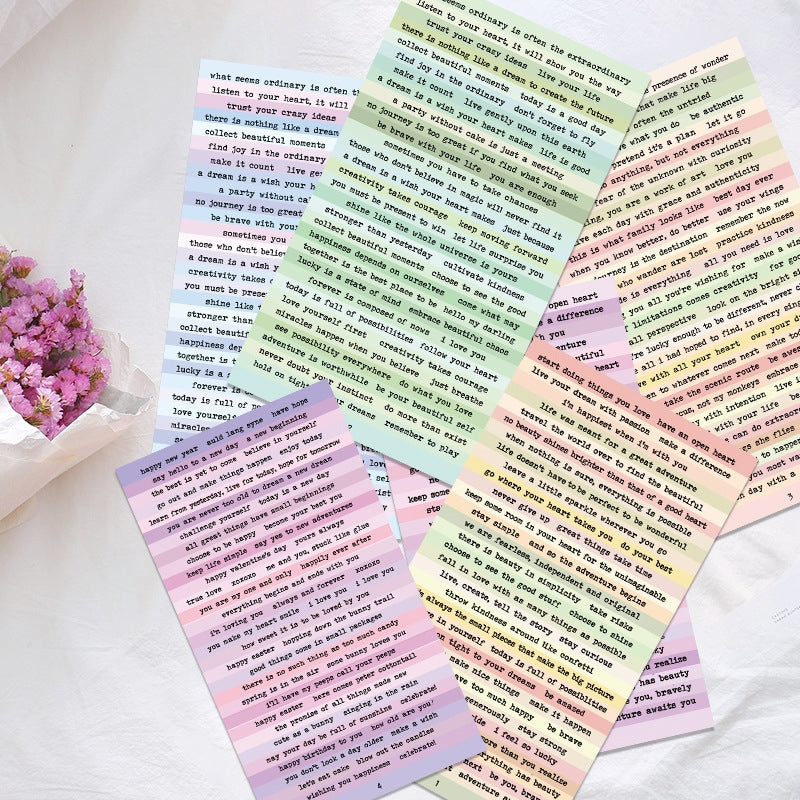 seems ordinary is often the extraordinary
listen to your heart, it will show you the way
trust your crazy ideas live your life
there is nothing like a dream to create the future
collect beautiful moments today is a good day
find joy in the ordinary don't forget to fly
make it count live gently upon this earth
a dream is a wish your heart makes life is good
no journey is too great if you find what you seek
a party without cake is just a meeting
be brave with your life you are enough
sometimes you have to take chances
those who don't believe in magic will never find it
a dream is a wish your heart makes just because
creativity takes courage keep moving forward
you must be present to win let life surprise you
shine like the whole universe is yours
stronger than yesterday cultivate kindness
collect beautiful moments choose to see the good
happiness depends on ourselves come what may
together is the best place to be hello my darling
lucky is a state of mind embrace beautiful chaos
forever is composed of nows i love you
today is full of possibilities follow your heart
love yourself first creativity takes courage
miracles happen when you believe just breathe
see possibility everywhere do what you love
adventure is worthwhile be your beautiful self
never doubt your instinct do more than exist
hold on tight your dreams remember to play
what seems ordinary is often th
listen to your heart, it will
trust your crazy ideas
there is nothing like a dream
collect beautiful moments
find joy in the ordinary
make it count live gen
a dream is a wish your h
a party without ca
no journey is too great
be brave with your
sometimes you
those who don't belie
a dream is a wish y
creativity takes
you must be prese
shine like
stronger than
collect beauti
happiness dep
together is t
lucky is a s
forever is
today is full of p
love yourself
miracles
see
presence of wonder
make life big
often the untried
what you do be authentic
pretend it's a plan let it go
anything, but not everything
ear of the unknown with curiosity
ing, you are a work of art love you
ve each day with grace and authenticity
this is what family looks like best day ever
when you know better, do better use your wings
journey is the destination remember the now
who wander are lost practice kindness
is everything all you need is love
you all you're wishing for make a wish
limitations comes creativity for goodness
all perspective look on the bright side
re lucky enough to be different, never change
all i had hoped to find, in every single
e with all your heart own your
en to whatever comes next make tod
take the scenic route be awes
us not my monkeys embrace
with intention live i
with your life be
can do extraor
s she flies
most wa
day with a
3
open heart
a difference
h you
enture
tiful
heart
start doing things you love have an open heart
live your dream with passion make a difference
i'm happiest when it's with you
life was meant for a great adventure
travel the world over to find the beautiful
no beauty shines brighter than that of a good heart
when nothing is sure, everything is possible
life doesn't have to be perfect to be wonderful
leave a little sparkle wherever you go
go where your heart takes you do your best
never give up great things take time
keep some room in your heart for the unimaginable
stay simple and so the adventure begins
we are fearless, independent and original
there is beauty in simplicity take risks
choose to see the good stuff choose to shine
fall in love with as many things as possible
live, create, tell the story stay curious
throw kindness around like confetti
always the small pieces that make the big picture
in yourself today is full of possibilities
on tight to your dreams be amazed
make nice things make it happen
ave too much happy be brave
generously stay strong
ide i feel so lucky
re than you realize
erything has beauty
nert be you, brav
t adventure aw
1
happy new year auld lang syne have hope
say hello to a new day a new beginning
the best is yet to come believe in yourself
go out and make things happen enjoy today
learn from yesterday, live for today, hope for tomorrow
you are never too old to dream a new dream
challenge yourself today is a new day
all great things have small beginnings
choose to be happy become your best you
keep life simple say yes to new adventures
happy valentine's day yours always
true love xoxoxo me and you, stuck like glue
you are my one and only happily ever after
everything begins and ends with you
i'm loving you always and forever xoxoxo
you make my heart smile i love you i love you
how sweet it is to be loved by you
happy easter hopping down the bunny trail
good things come in small packages
there is no such thing as too much candy
spring is in the air some bunny loves you
i'll have my peeps call your peeps
happy easter here comes peter cottontail
the promise of all things made new
cute as a bunny singing in the rain
may your day be full of sunshine celebrate!
happy birthday to you how old are you?
you don't look a day older make a wish
let's eat cake blow out the candles
wishing you happiness celebrate!
4
keep some
stay
u realize
has beauty
you, bravely
nture awaits you